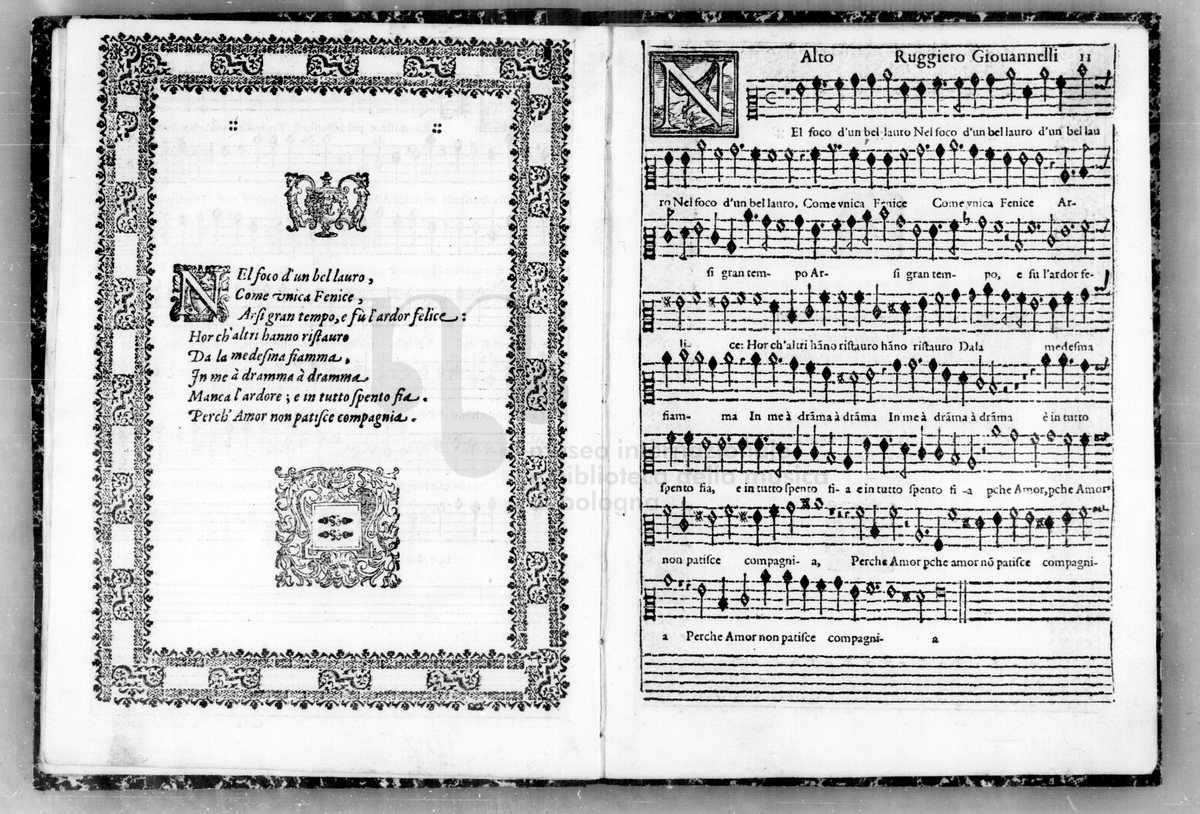 NEl foco d'un bel lauro,
Come vnica Fenice,
Arsi gran tempo, e fù l'ardor felice:
Hor ch'altri hanno ristauro
Da la medesma fiamma,
In me à dramma à dramma
Manca l'ardore; e in tutto spento fia.
Perch' Amor non patisce compagnia.
museo in
biblioteca della musica
bologna
Alto Ruggiero Giouannelli 11
NEl foco d'un bel lauro Nel foco d'un bel lauro d'un bel lau
ro Nel foco d'un bel lauro, Come vnica Fenice Come vnica Fenice Ar-
si gran tem- po Ar- si gran tem- po, e fu l'ardor fe-
li- ce: Hor ch'altri hãno ristauro hãno ristauro Dala medesma
fiam- ma In me à drãma à drãma In me à drãma à drãma è in tutto
spento fia, e in tutto spento fi- a e in tutto spento fi -a pche Amor, pche Amor
non patisce compagni- a, Perche Amor pche amor nõ patisce compagni-
a Perche Amor non patisce compagni- a